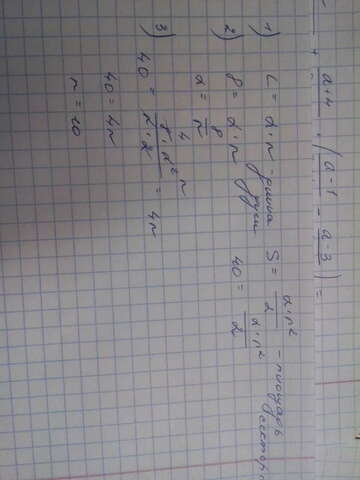 a+4 · ( a-1 - a-3 ) =
1) L = α·r - длина дуги S = α·r² / 2 - площадь сектора
2) 8 = α·r 40 = α·r² / 2
α = 8 / r
3) 40 = 8·r² / r·2 = 4r
40 = 4r
r = 10